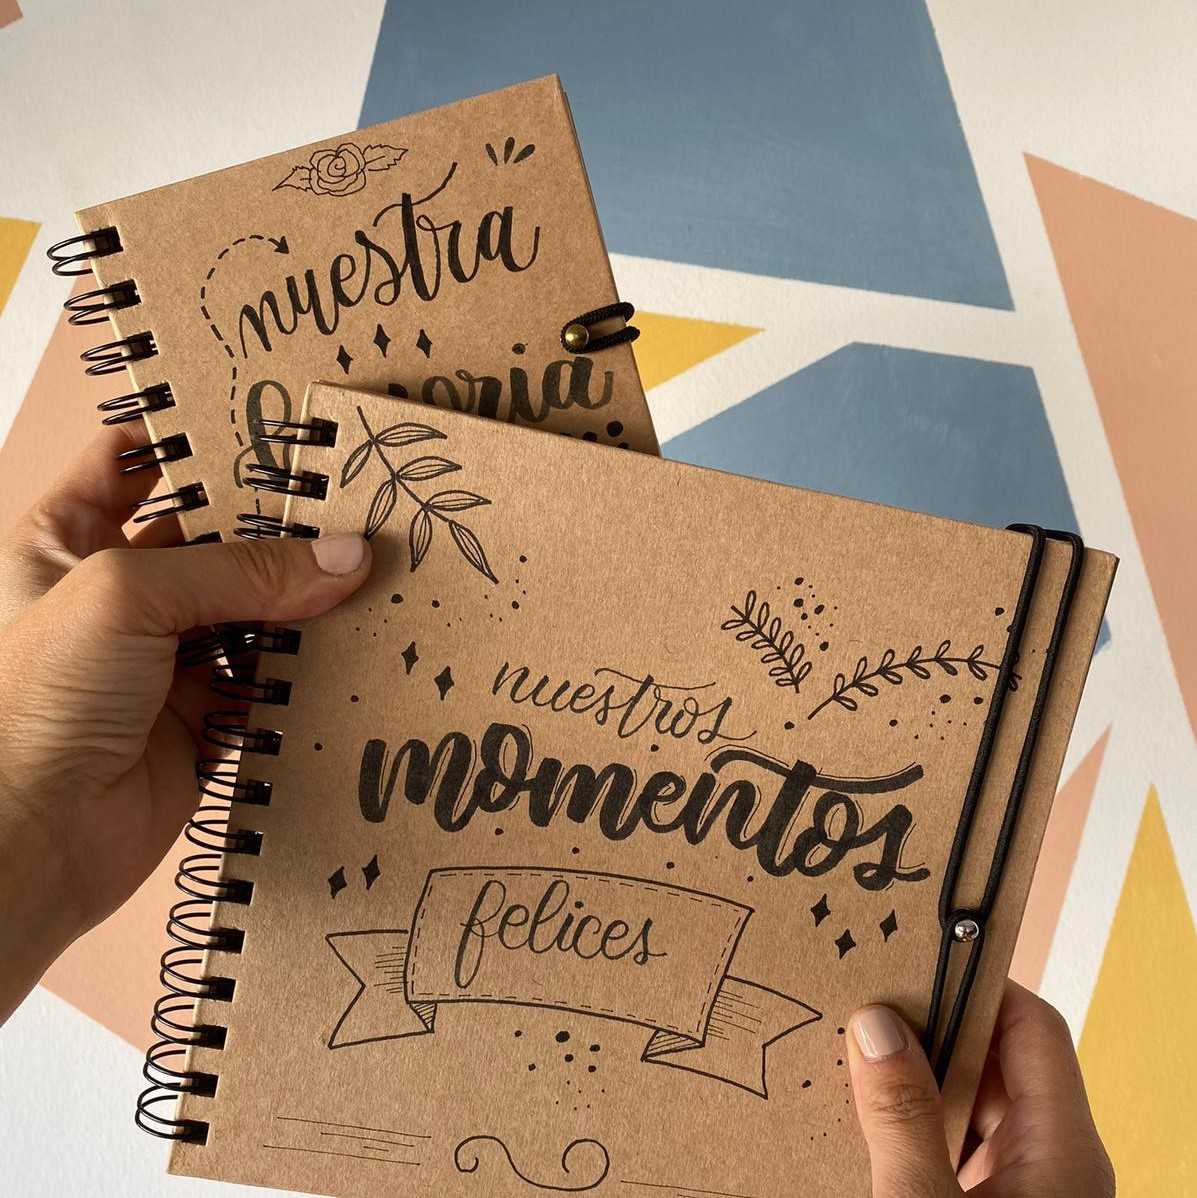 nuestra
nuestros
momentos
felices